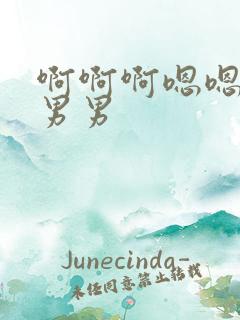 啊啊啊嗯嗯
男男
Junecinda-
未经同意禁止转载